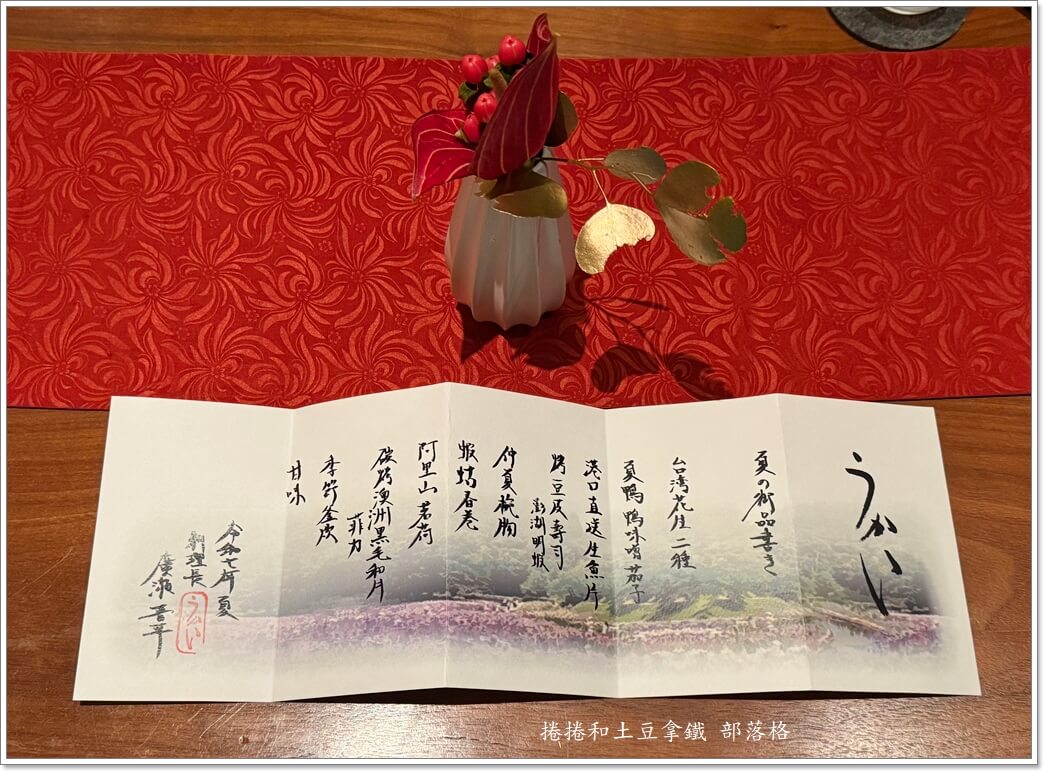 うかい
夏の御品書き
台湾花生二種
夏鴨 鴨味噌茄子
港口直送生魚片
烤豆皮壽司
澎湖明蝦
仲夏椀物
蝦蟳春卷
阿里山茗荷
碳烤澳洲黑毛和牛
菲力
季節釜炊
甘味
令和七年 夏
調理長
うかい
捲捲和土豆拿鐵 部落格